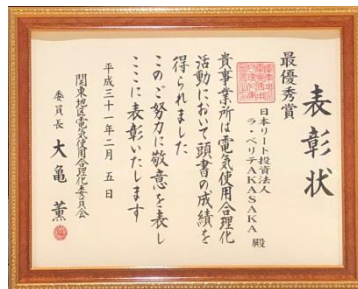 表彰状
最優秀賞
日本リート投資法人
ラ・ベリテAKASAKA 殿
貴事業所は電気使用合理化
活動において頭書の成績を
得られました
このご努力に敬意を表し
ここに表彰いたします
平成三十一年二月 五 日
関東地区電気使用合理化委員会
委員長 大亀 薫